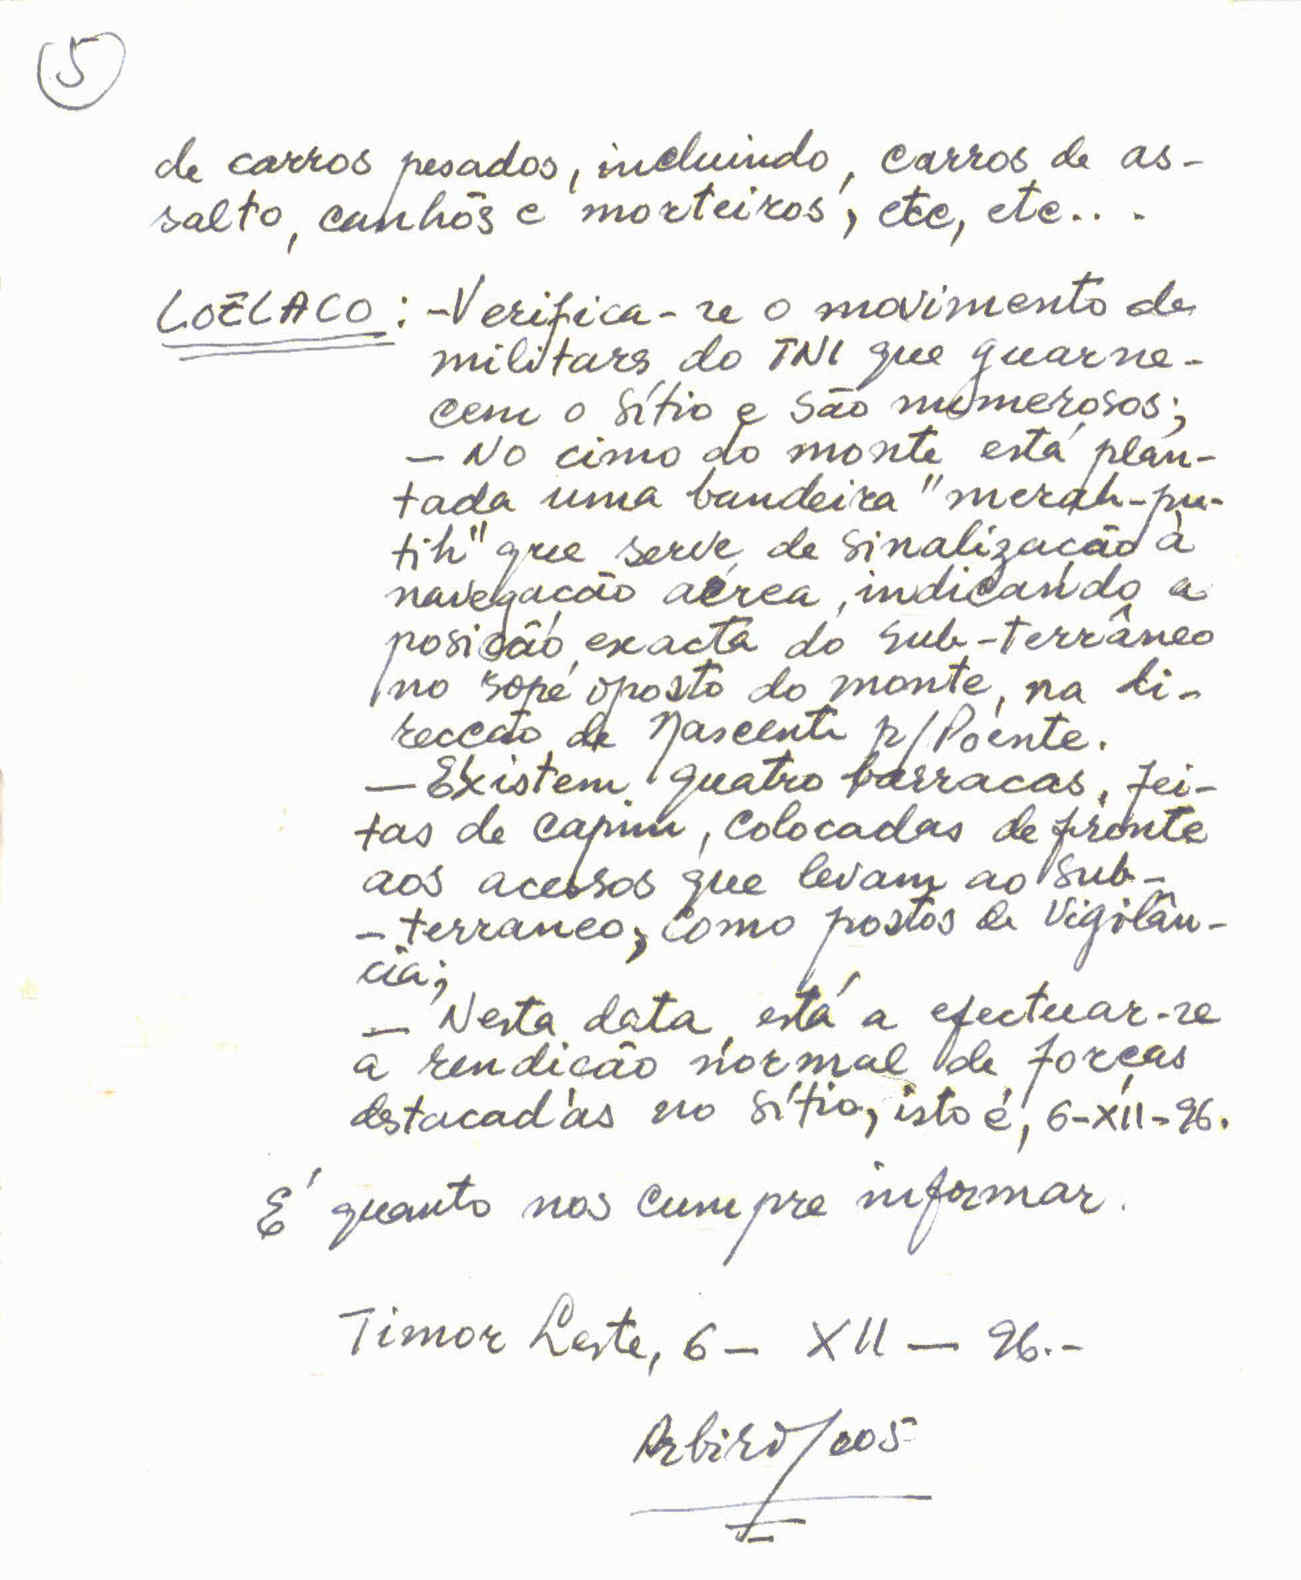 5
de carros pesados, incluindo, carros de as-
salto, canhõs e morteiros, etc, etc...
LOÉLACO: -Verifica-se o movimento de
militars do TNI que guarne-
cem o sítio e são numerosos;
- No cimo do monte está plan-
tada uma bandeira "merah-pu-
tih" que serve de sinalização à
navegação aérea, indicando a
posição exacta do sub-terrâneo
no sopé oposto do monte, na di-
recção de Nascente p/Poente.
- Existem quatro barracas, fei-
tas de capim, colocadas de fronte
aos acessos que levam ao sub-
-terraneo, como postos de vigilân-
cia;
- Nesta data, está a efectuar-se
a rendição normal de forças
destacadas no sítio, isto é, 6-XII-96.
É quanto nos cumpre informar.
Timor Leste, 6- XII - 96.-
Arbirú/005